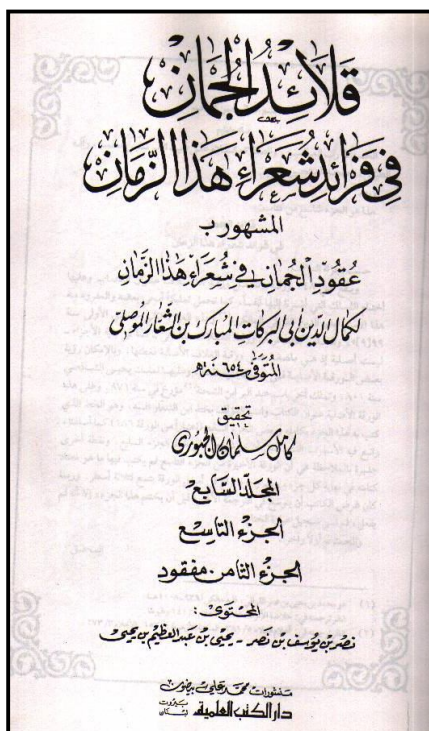 قلائد الجمان
في فرائد شعراء هذا الزمان
المشهور ب
عقود الجمان في شعراء هذا الزمان
لكمال الدين أبي البركات المبارك بن الشعار الموصلي
المتوفى سنة ٦٥٤ هـ
تحقيق
كامل سلمان الجبوري
المجلد السابع
الجزء التاسع
الجزء الثامن مفقود
المحتوى:
نصر بن يوسف بن نصر - يحيى بن عبد العظيم بن يحيى
منشورات محمد علي بيضون
دار الكتب العلمية
بيروت
لبنان